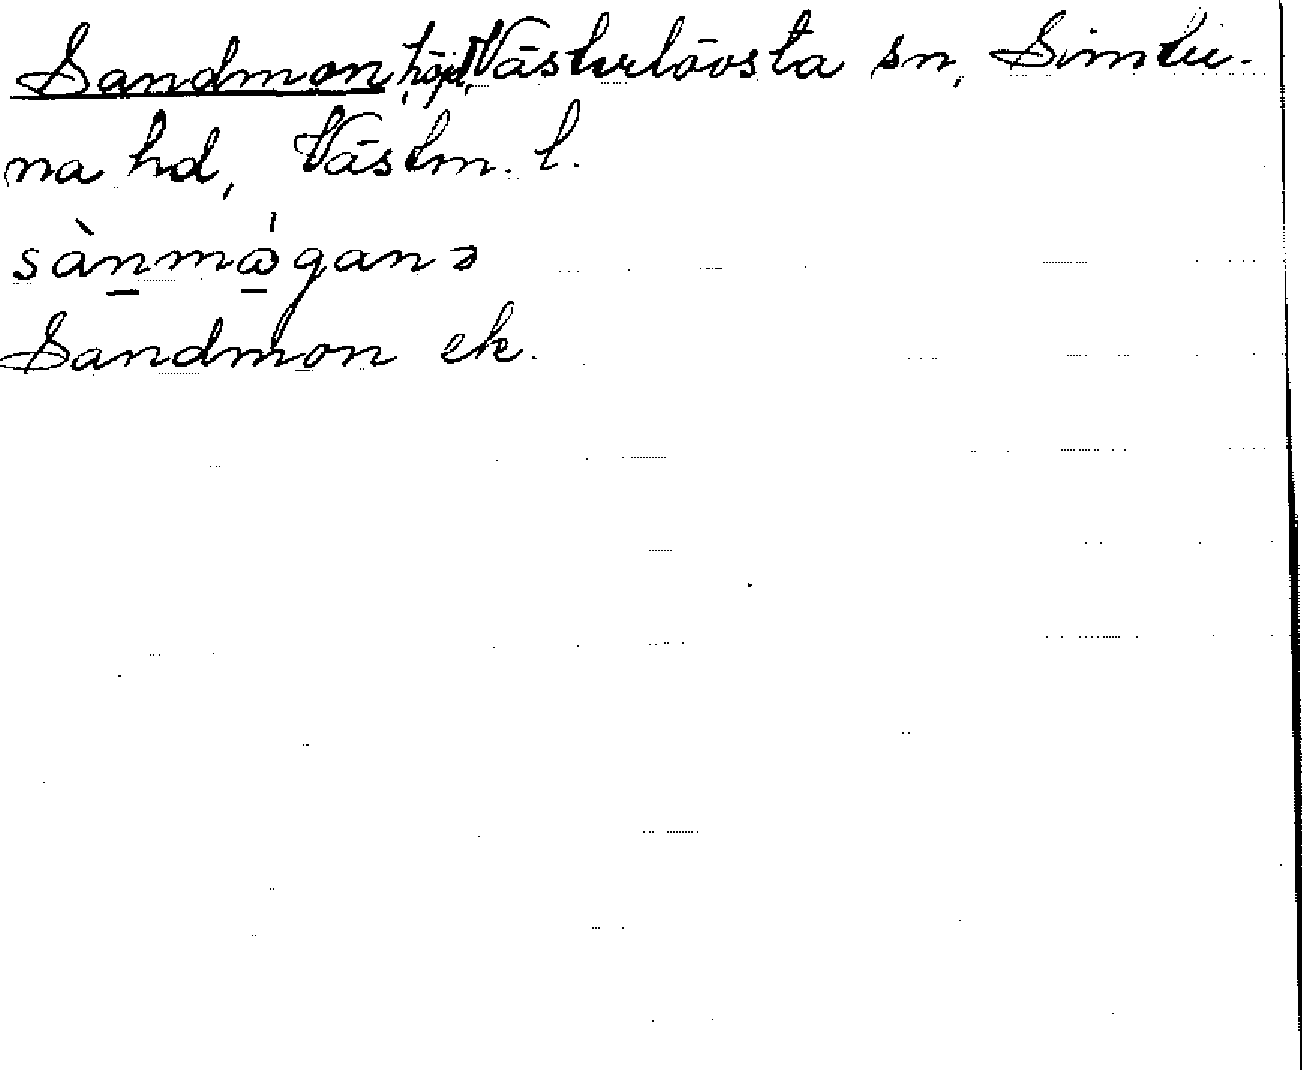 Sandmon, höjd, Västerlövsta sn, Simtu-
na hd, Västm. l.
sànmǫ́ganə
Sandmon ek.